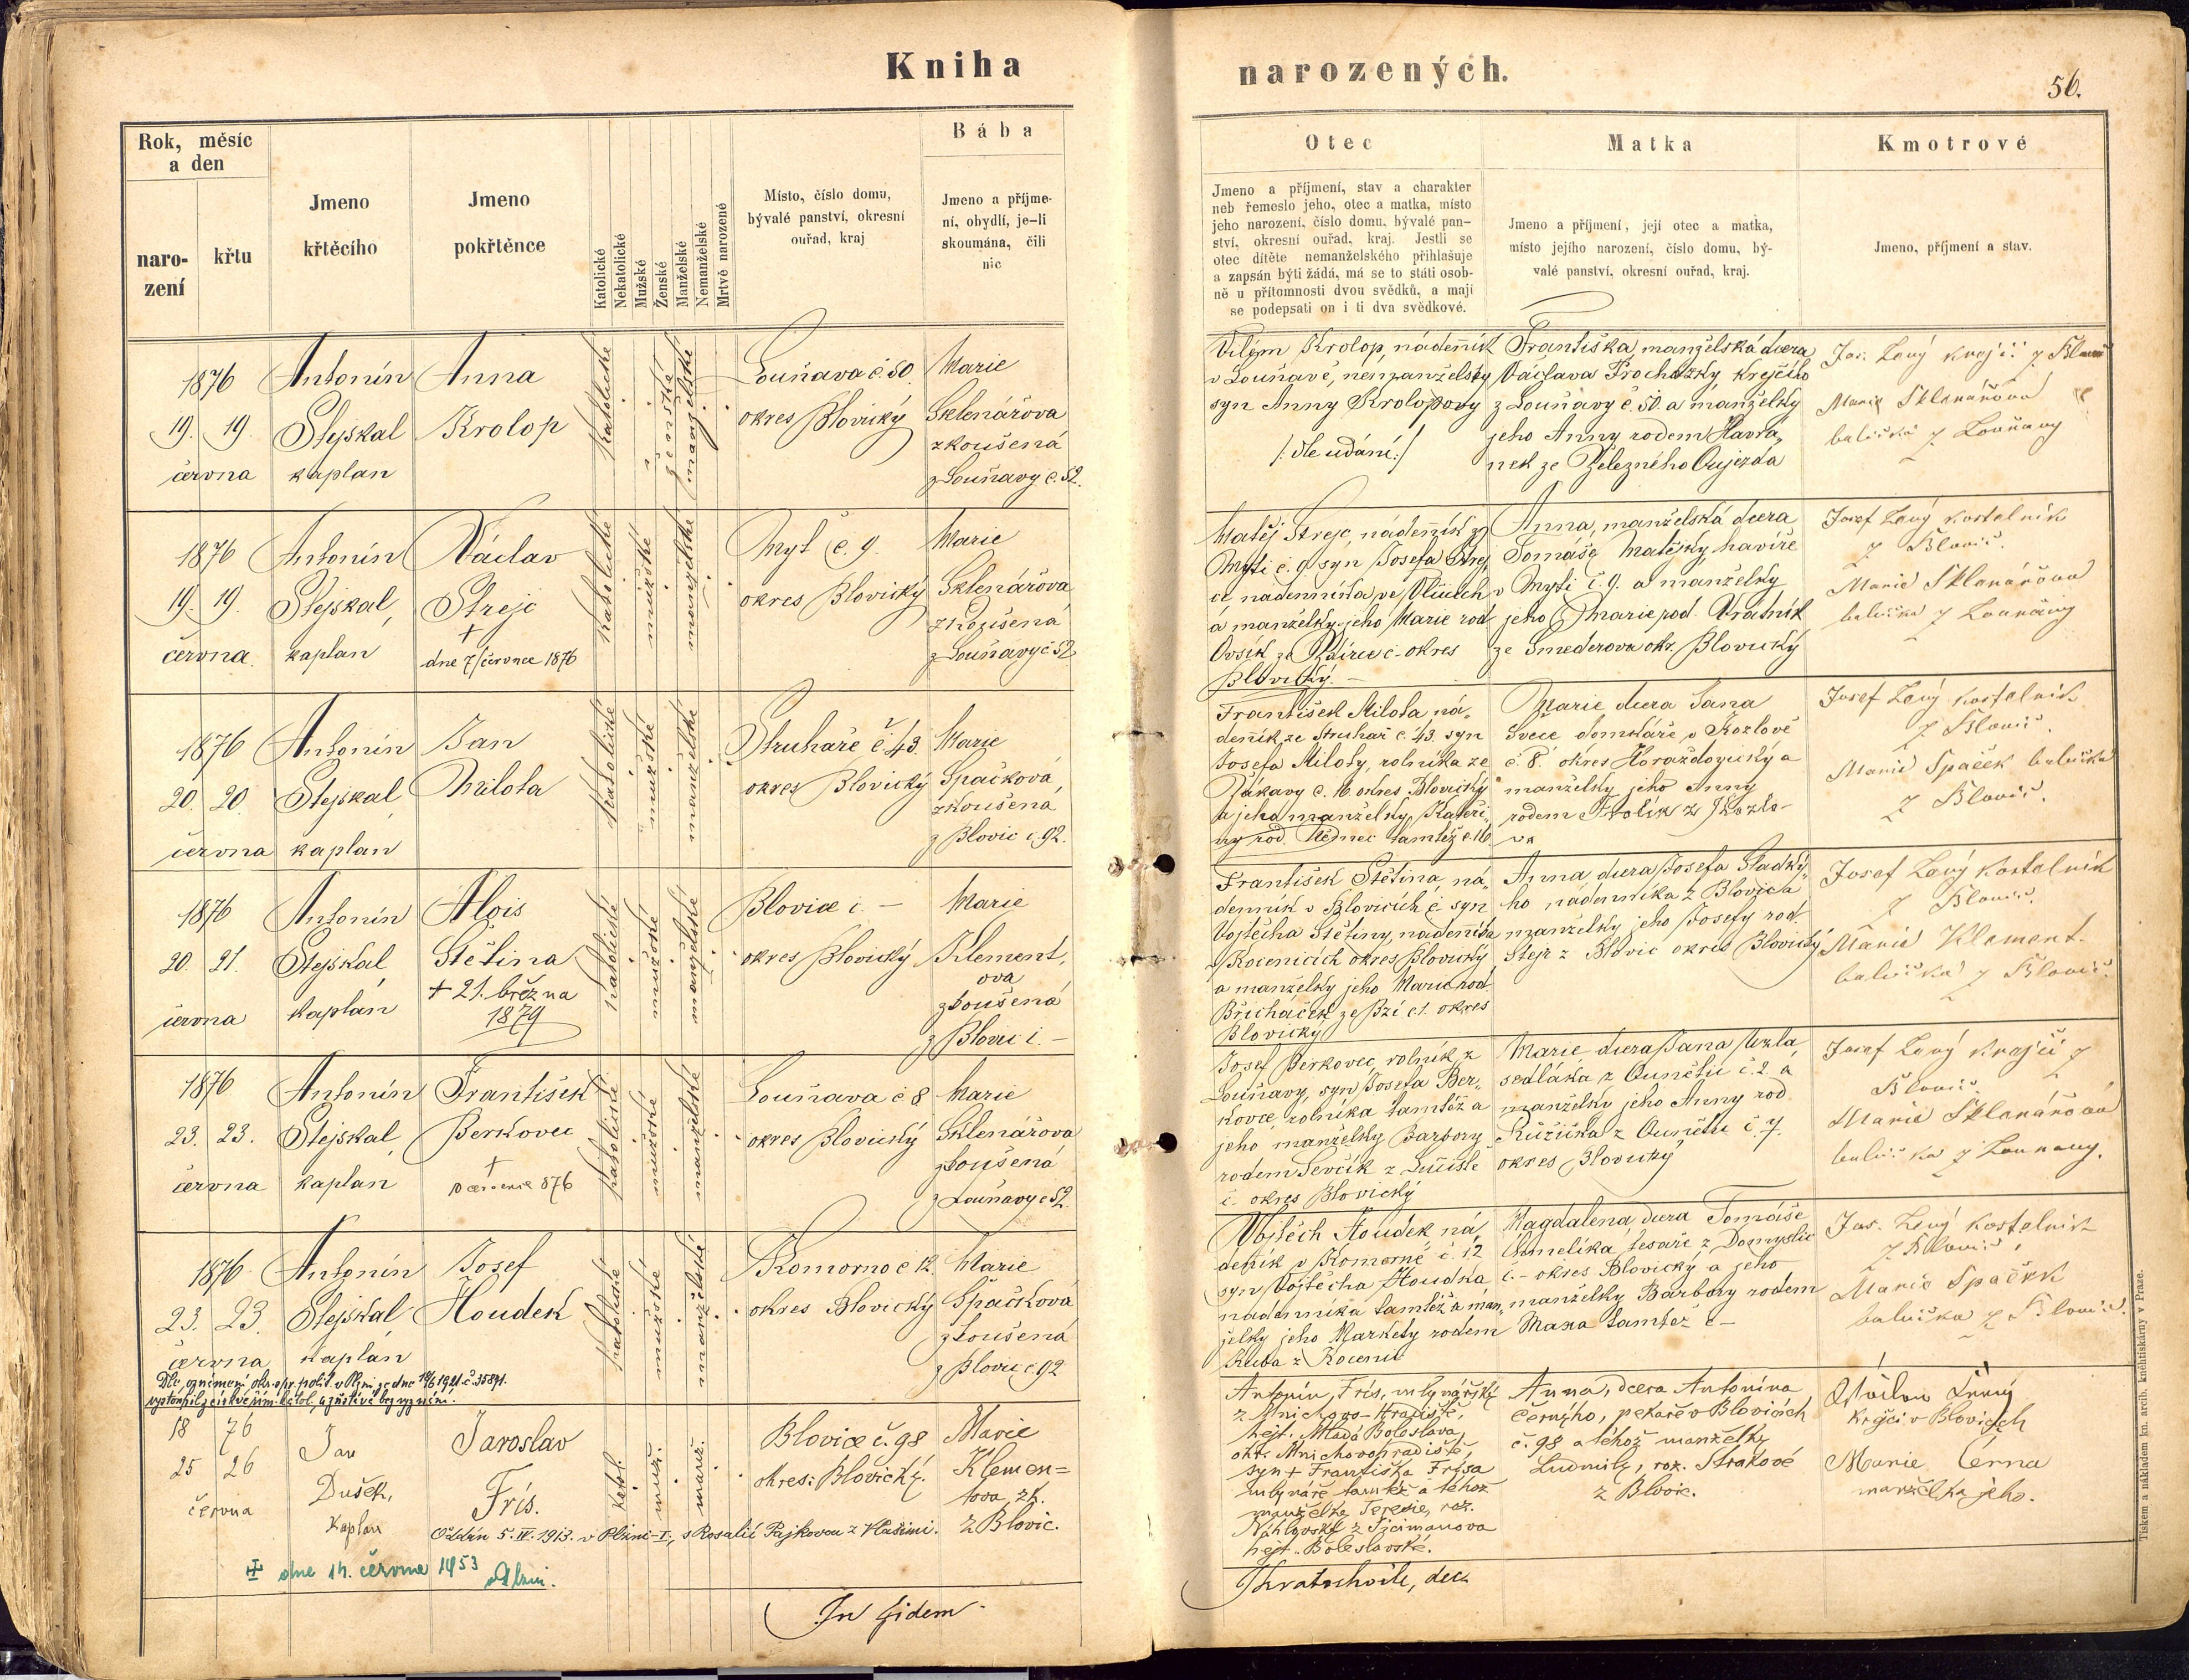 Kniha
narozených.
56.
Rok, měsíc
a den
naro-
zení
křtu
Jmeno
křtěcího
Jmeno
pokřtěnce
Katolické
Nekatolické
Mužské
Ženské
Manželské
Nemanželské
Mrtvě narozené
Místo, číslo domu,
bývalé panství, okresní
ouřad, kraj
Bába
Jmeno a příjme-
ní, obydlí, je-li
skoumána, čili
nic
Otec
Jmeno a příjmení, stav a charakter
neb řemeslo jeho, otec a matka, místo
jeho narození, číslo domu, bývalé pan-
ství, okresní ouřad, kraj. Jestli se
otec dítěte nemanželského přihlašuje
a zapsán býti žádá, má se to státi osob-
ně u přítomnosti dvou svědků, a mají
se podepsati on i ti dva svědkové.
Matka
Jmeno a příjmení, její otec a matka,
místo jejího narození, číslo domu, bý-
valé panství, okresní ouřad, kraj.
Kmotrové
Jmeno, příjmení a stav.
1876
19. 19.
června
Antonín
Stejskal
kaplan
Anna
Krolop
katolické
ženské
manželské
Louňava č. 50.
okres Blovický
Marie
Sklenářova
zkoušená
z Louňavy č. 52.
Vilém Krolop, nádenník
v Louňavě, nemanželský
syn Anny Krolopovy
/: dle udání :/
Františka manželská dcera
Václava Procházky, krejčího
z Louňavy č. 50. a manželky
jeho Anny rodem Havrá„
nek ze Železného Oujezda
Jos. Levý krejčí z Blovic
Marie Sklenářova
babička z Louňavy
1876
19. 19.
června
Antonín
Stejskal,
kaplan
Václav
Strejc
+
dne 7/července 1876
katolické
mužské
manželské
Myť č. 9.
okres Blovický
Marie
Sklenářova
zkoušená
z Louňavy č 52
Matěj Strejc, nádenník z
Myti č. 9 syn Josefa Strej,
ce nádenníka ve Vlčicích
a manželky jeho Marie rod
Ovsík ze Ždírce č - okres
Blovický. -
Anna, manželská dcera
Tomáše Matějky, havíře
v Myti č. 9. a manželky
jeho Marie rod. Vrátník
ze Smederova okr. Blovický
Josef Levý kostelník
z Blovic.
Marie Sklenářova
babička z Louňavy
1876
20. 20.
června
Antonín
Stejskal
kaplan
Jan
Milota
katolické
mužské
manželské
Struhaře č. 43.
okres Blovický
Marie
Špačková
zkoušená
z Blovic č. 92.
František Milota ná„
denník ze Struhař č. 43. syn
Josefa Miloty, rolníka ze
Žákavy č. 16 okres Blovický
a jeho manželky Kateři„
ny rod. Němec tamtéž č. 16
Marie dcera Jana
Švece domkáře v Kozlově
č. 8. okres Horažďovický a
manželky jeho Anny
rodem Stolík z Kozlo-
va
Josef Levý kostelník
z Blovic.
Marie Spaček babička
z Blovic.
1876
20. 21.
června
Antonín
Stejskal
kaplan
Alois
Štětina
+ 21. března
1879
katolické
mužské
manželské
Blovice č. -
okres Blovický
Marie
Klement,
ova
zkoušená
z Blovic č. -
František Štětina, ná„
denník v Blovicích č - syn
Vojtěcha Štětiny, nádenníka
v Kocenicích okres Blovický
a manželky jeho Marie rod.
Břicháček ze Bzí č 1. okres
Blovický
Anna, dcera Josefa Sladký„
ho nádenníka z Blovic a
manželky jeho Josefy rod.
Stejr z Blovic okres Blovický
Josef Levý kostelník
z Blovic.
Marie Klement.
babička z Blovic.
1876
23. 23.
června
Antonín
Stejskal
kaplan
František
Berkovec
+
10 července 876
katolické
mužské
manželské
Louňava č 8
okres Blovický
Marie
Sklenářova
zkoušená
z Louňavy č 52.
Josef Berkovec rolník z
Louňavy, syn Josefa Ber„
kovce, rolníka tamtéž a
jeho manželky Barbory
rodem Ševčík z Lučiště
č - okres Blovický
Marie dcera Jana Uzla
sedláka z Ounětic č. 2. a
manželky jeho Anny rod
Růžička z Ounětic č. 7
okres Blovický
Josef Levý krejčí z
Blovic.
Marie Sklenářova
babička z Louňavy.
1876
23. 23.
června
Antonín
Stejskal
kaplan
Josef
Houdek
katolické
mužské
manželské
Komorno č 12.
okres Blovický
Marie
Špačková
zkoušená
z Blovic č. 92
Vojtěch Houdek, ná„
deník v Komorně č. 12
syn Vojtěcha Houdka
nádenníka tamtéž a man„
želky jeho Markety rodem
Kuba z Kocenic
Magdalena, dcera Tomáše
Chmelíka tesaře z Domyslic
č. - okres Blovický a jeho
manželky Barbory rodem
Maxa tamtéž č -
Jos. Levý kostelník
z Blovic,
Marie Spaček
babička z Blovic.
Dle oznámení okr. spr. polit. v Plzni ze dne 18/6 1921. č. 35891.
vystoupil z církve řím. katol. a zůstává bez vyznání.
18 76
25 26
června
Jan
Dušek,
kaplan
Jaroslav
Frís.
katol.
muž.
manž.
Blovice č. 98
okres: Blovický.
Marie
Klemen=
tova, zk.
z Blovic.
Oddán 5. IV. 1913. v Plzni-I., s Rosalií Pajkovou z Vlašimi.
dne 14. června 1953
v Plzni.
Antonín Frís, mlynářský
z Mnichovo-Hradiště,
hejt. Mladá Boleslava,
okr. Mnichovohradiště,
syn + Františka Frísa
mlynáře tamtéž a téhož
manželky Terezie, roz.
Náhlovské z Žďcimanova
hejt. Boleslavské.
Anna, dcera Antonína
Černýho, pekaře v Blovicích
č. 98 a téhož manželky
Ludmily, roz. Strakové
z Blovic.
Václav Černý
krejčí v Blovicích
Marie Černa
manželka jeho.
In fidem
Khratochvile, dec.
Tiskem a nákladem kn. arcib. knihtiskárny v Praze.